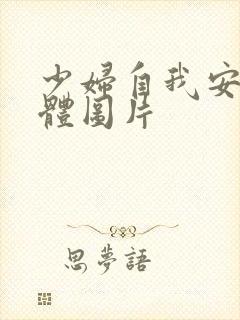 少婦自我安
體圖片
思夢語